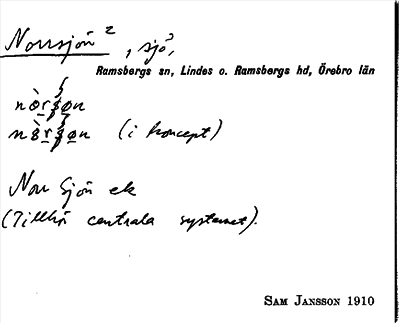 Norrsjön 2, sjö,
Ramsbergs sn, Lindes o. Ramsbergs hd, Örebro län
(i koncept)
Norr Sjön ek
(Tillhör centrala systemet).
SAM JANSSON 1910